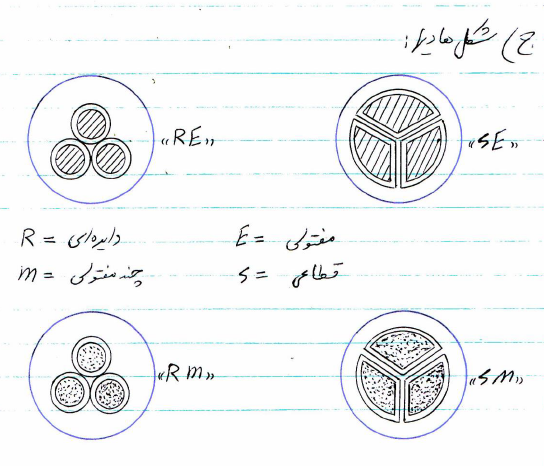 ج) شکل هادیها:
«RE» «SE»
R = دایره‌ای E = مفتولی
m = چند مفتولی S = قطاعی
«Rm» «SM»